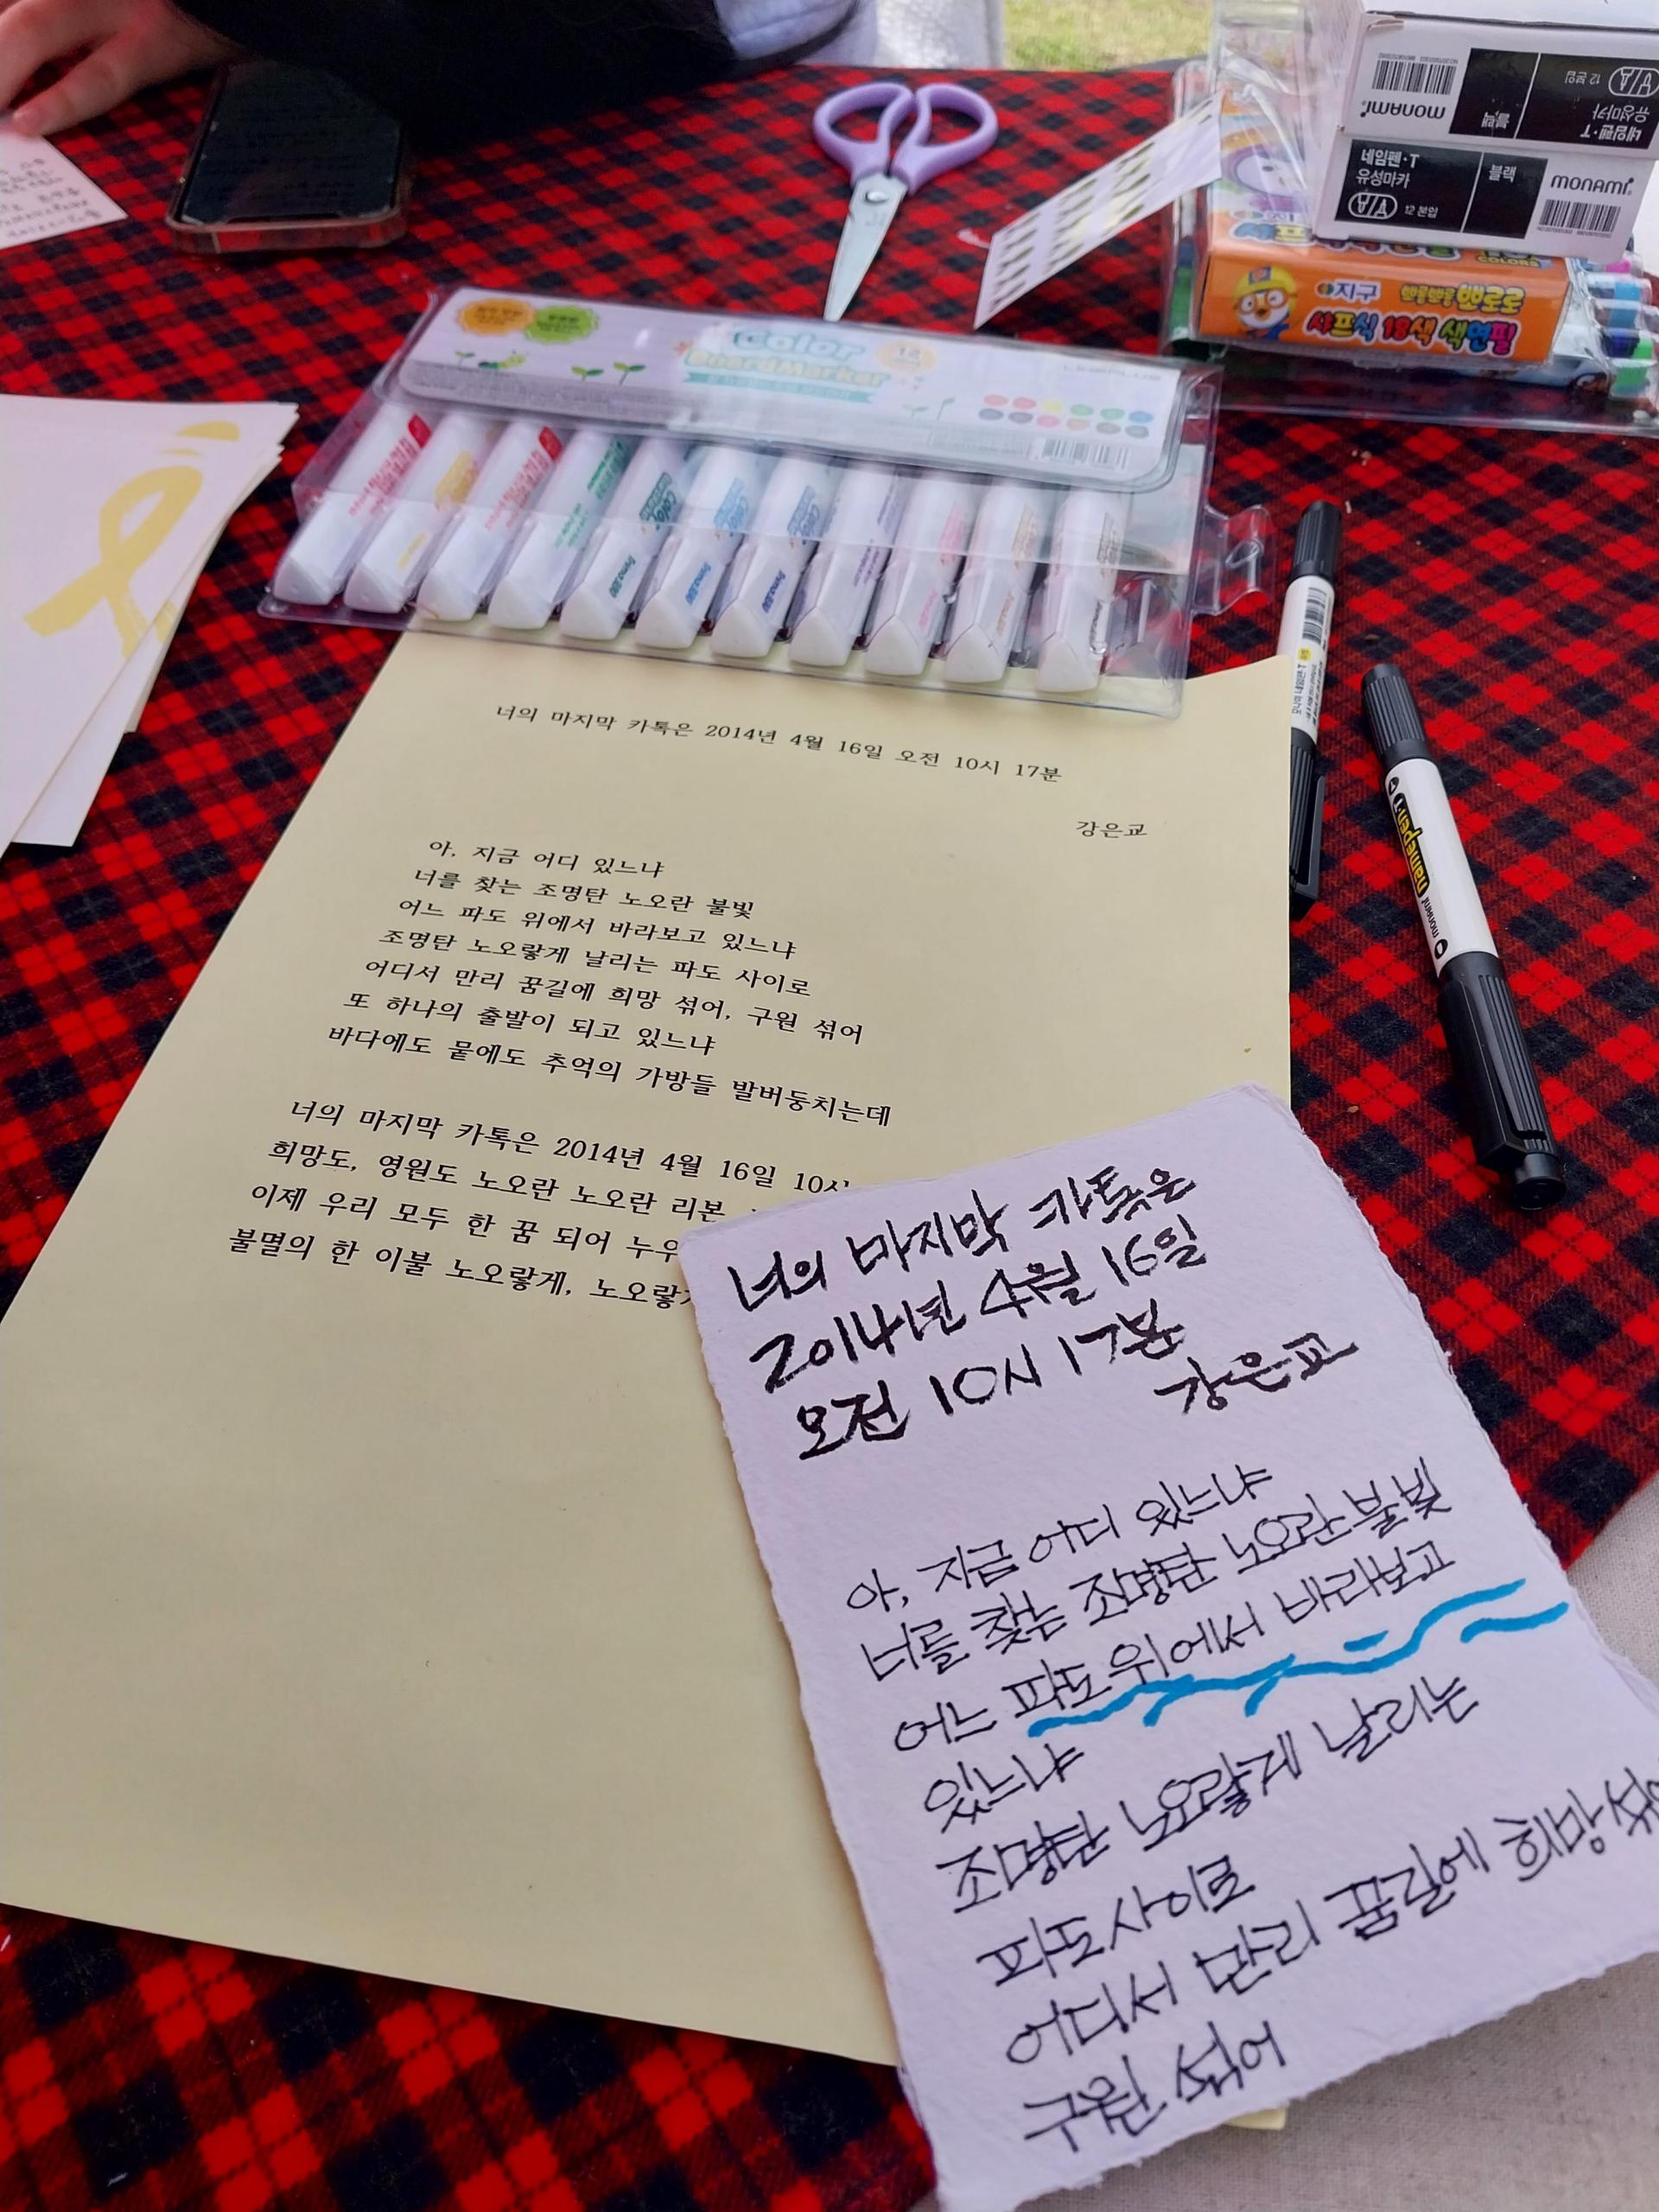 monami
블랙
네임펜·T
유성마카
12 본입
네임펜·T
유성마카
블랙
monami
12 본입
COLORS
지구
뽀로로
샤프식 18색 색연필
Color
BoardMarker
너의 마지막 카톡은 2014년 4월 16일 오전 10시 17분
강은교
아, 지금 어디 있느냐
너를 찾는 조명탄 노오란 불빛
어느 파도 위에서 바라보고 있느냐
조명탄 노오랗게 날리는 파도 사이로
어디서 만리 꿈길에 희망 섞어, 구원 섞어
또 하나의 출발이 되고 있느냐
바다에도 뭍에도 추억의 가방들 발버둥치는데
너의 마지막 카톡은 2014년 4월 16일
희망도, 영원도 노오란 노오란 리본
이제 우리 모두 한 꿈 되어
불멸의 한 이불 노오랗게,
namepen
monami
너의 마지막 카톡은
2014년 4월 16일
오전 10시 17분
강은교
아, 지금 어디 있느냐
너를 찾는 조명탄 노오란 불빛
어느 파도 위에서 바라보고
있느냐
조명탄 노오랗게 날리는
파도 사이로
어디서 만리 꿈길에 희망
구원 섞어